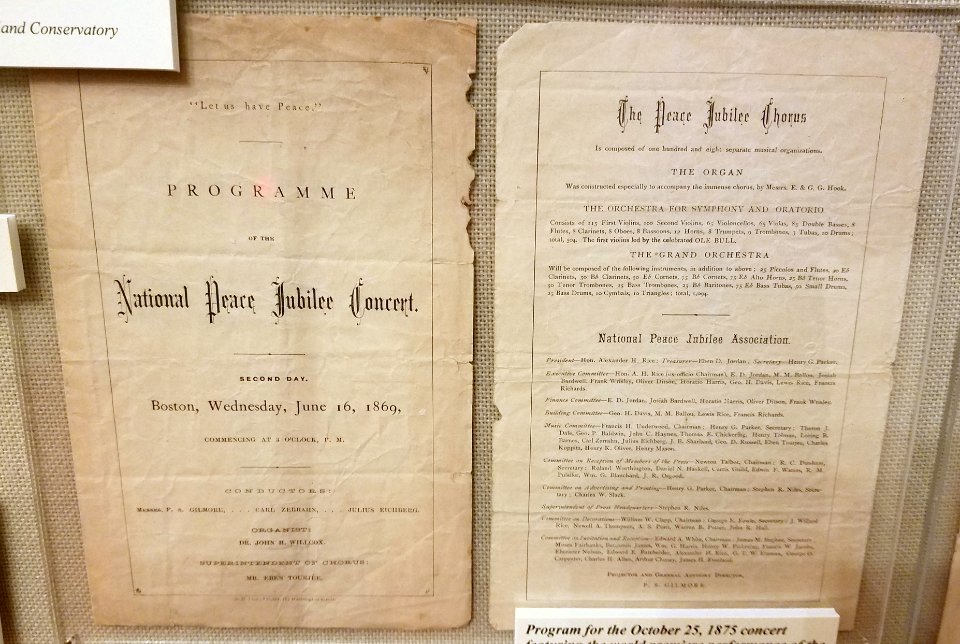 and Conservatory
"Let us have Peace."
PROGRAMME
OF THE
National Peace Jubilee Concert.
SECOND DAY.
Boston, Wednesday, June 16, 1869,
COMMENCING AT 3 O'CLOCK, P. M.
CONDUCTORS:
MESSRS. P. S. GILMORE, . . . CARL ZERRAHN, . . . JULIUS EICHBERG.
ORGANIST:
DR. JOHN H. WILLCOX.
SUPERINTENDENT OF CHORUS:
MR. EBEN TOURJÉE.
The Peace Jubilee Chorus
Is composed of one hundred and eight separate musical organizations.
THE ORGAN
Was constructed especially to accompany the immense chorus, by Messrs. E. & G. G. Hook.
THE ORCHESTRA FOR SYMPHONY AND ORATORIO
Consists of 115 First Violins, 100 Second Violins, 65 Violoncellos, 65 Violas, 85 Double Basses, 8
Flutes, 8 Clarinets, 8 Oboes, 8 Bassoons, 12 Horns, 8 Trumpets, 9 Trombones, 3 Tubas, 10 Drums;
total, 504. The first violins led by the celebrated OLE BULL.
THE GRAND ORCHESTRA
Will be composed of the following instruments, in addition to above: 25 Piccolos and Flutes, 20 E♭
Clarinets, 50 B♭ Clarinets, 50 E♭ Cornets, 75 B♭ Cornets, 75 E♭ Alto Horns, 25 B♭ Tenor Horns,
50 Tenor Trombones, 25 Bass Trombones, 25 B♭ Baritones, 75 E♭ Bass Tubas, 50 Small Drums,
25 Bass Drums, 10 Cymbals, 10 Triangles; total, 1,094.
National Peace Jubilee Association.
President—Hon. Alexander H. Rice; Treasurer—Eben D. Jordan; Secretary—Henry G. Parker.
Executive Committee—Hon. A. H. Rice (ex-officio Chairman), E. D. Jordan, M. M. Ballou, Josiah
Bardwell, Frank Wrisley, Oliver Ditson, Horatio Harris, Geo. H. Davis, Lewis Rice, Francis
Richards.
Finance Committee—E. D. Jordan, Josiah Bardwell, Horatio Harris, Oliver Ditson, Frank Wrisley.
Building Committee—Geo. H. Davis, M. M. Ballou, Lewis Rice, Francis Richards.
Music Committee—Francis H. Underwood, Chairman; Henry G. Parker, Secretary; Theron J.
Dale, Geo. P. Baldwin, John C. Haynes, Thomas E. Chickering, Henry Tolman, Loring B.
Barnes, Carl Zerrahn, Julius Eichberg, J. B. Sharland, Geo. D. Russell, Eben Tourjee, Charles
Koppitz, Henry K. Oliver, Henry Mason.
Committee on Reception of Members of the Press—Newton Talbot, Chairman; R. C. Dunham,
Secretary; Roland Worthington, Daniel N. Haskell, Curtis Guild, Edwin F. Waters, R. M.
Pulsifer, Wm. G. Blanchard, J. R. Osgood.
Committee on Advertising and Printing—Henry G. Parker, Chairman; Stephen R. Niles, Secre-
tary; Charles W. Slack.
Superintendent of Press Headquarters—Stephen R. Niles.
Committee on Decorations—William W. Clapp, Chairman; George S. Fowle, Secretary; J. Willard
Rice, Newell A. Thompson, A. S. Pratt, Warren B. Potter, John K. Hall.
Committee on Invitation and Reception—Edward A. White, Chairman; James M. Bugbee, Secretary;
Moses Fairbanks, Benjamin James, Wm. G. Harris, Henry W. Pickering, Francis W. Jacobs,
Ebenezer Nelson, Edward E. Batchelder, Alexander H. Rice,
Carpenter, Charles H. Allen, Arthur Cheney, James H. Freeland.
PROJECTOR AND GENERAL ADVISORY DIRECTOR,
P. S. GILMORE.
Program for the October 25, 1875 concert
featuring the world premiere performance of the